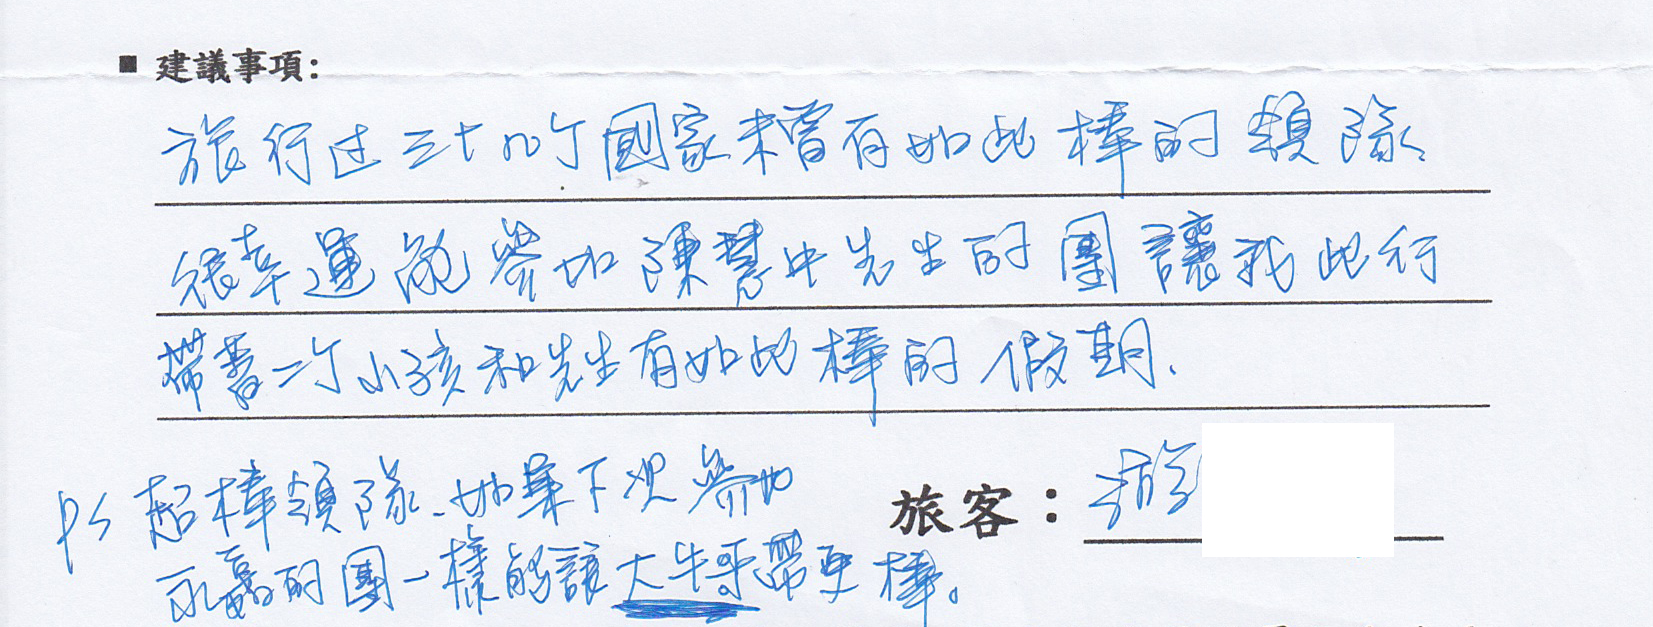 ■ 建議事項：
旅行过三十几个國家未曾有如此棒的領隊、
很幸運能參加陳慧中先生的團讓我此行
帶著二个小孩和先生有如此棒的假期.
PS 超棒領隊、如果下次參加
旅客：游
永嘉的團一樣能讓大牛哥帶更棒。